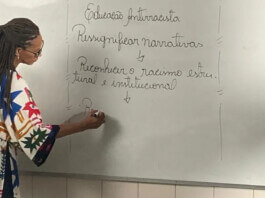 Educação Antirracista
Ressignificar narrativas
↓
Reconhecer o racismo estru-
tural e institucional
↓